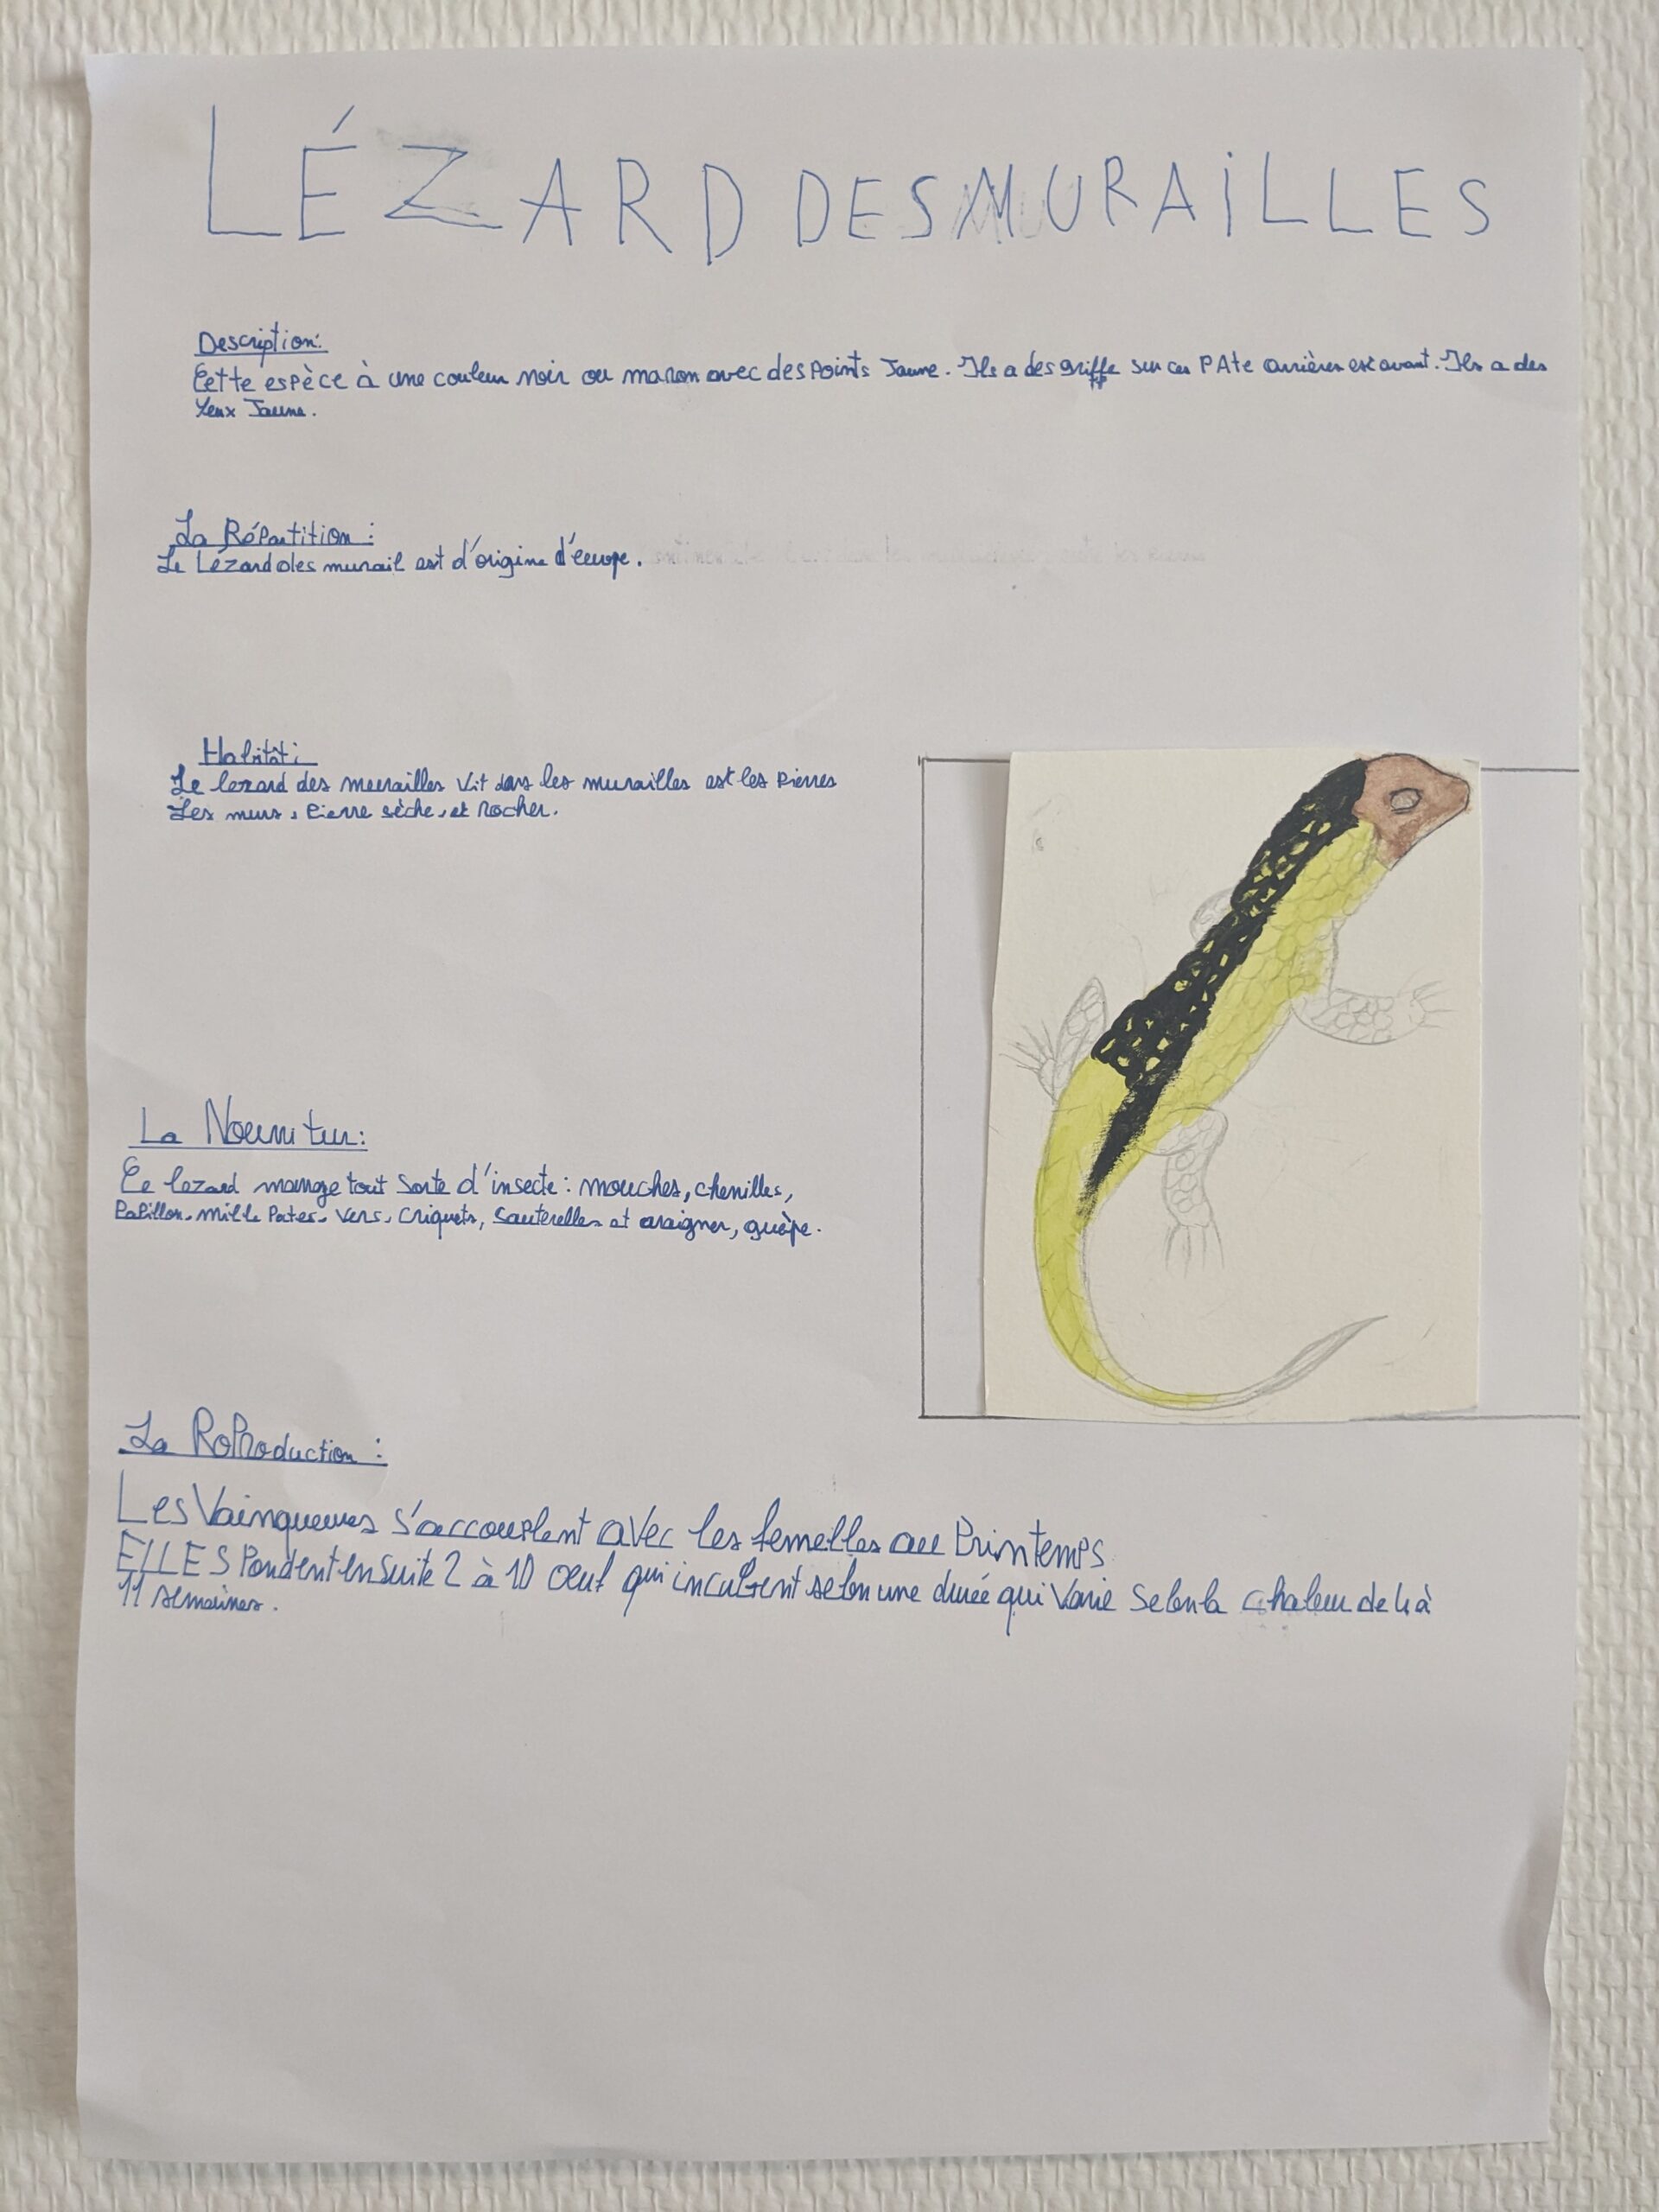 LÉZARD DES MURAiLLES
Description:
Cette espèce à une couleur noir ou maron avec des Points Jaune. Ils a des griffe sur ces PAte arrières est avant. Ils a des
Yeux Jaune.
La Répartition :
Le Lézard des murail est d'origine d'europe.
Habitat :
Le lezard des murailles Vit dans les murailles est les Pierres
Les murs, Pierre sèche, et Rocher.
La Nourritur:
Ce lezard mange tout Sorte d'insecte : mouches, chenilles,
Papillon, mille Pates, vers, criquets, sauterelles et araigner, guèpe.
La RoProduction :
Les Vainqueurs s'accouplent avec les femelles au Printemps
ELLES Pondent ensuite 2 à 10 oeuf qui incubent selon une durée qui Varie Selon la chaleur de 4 à
11 semaines.